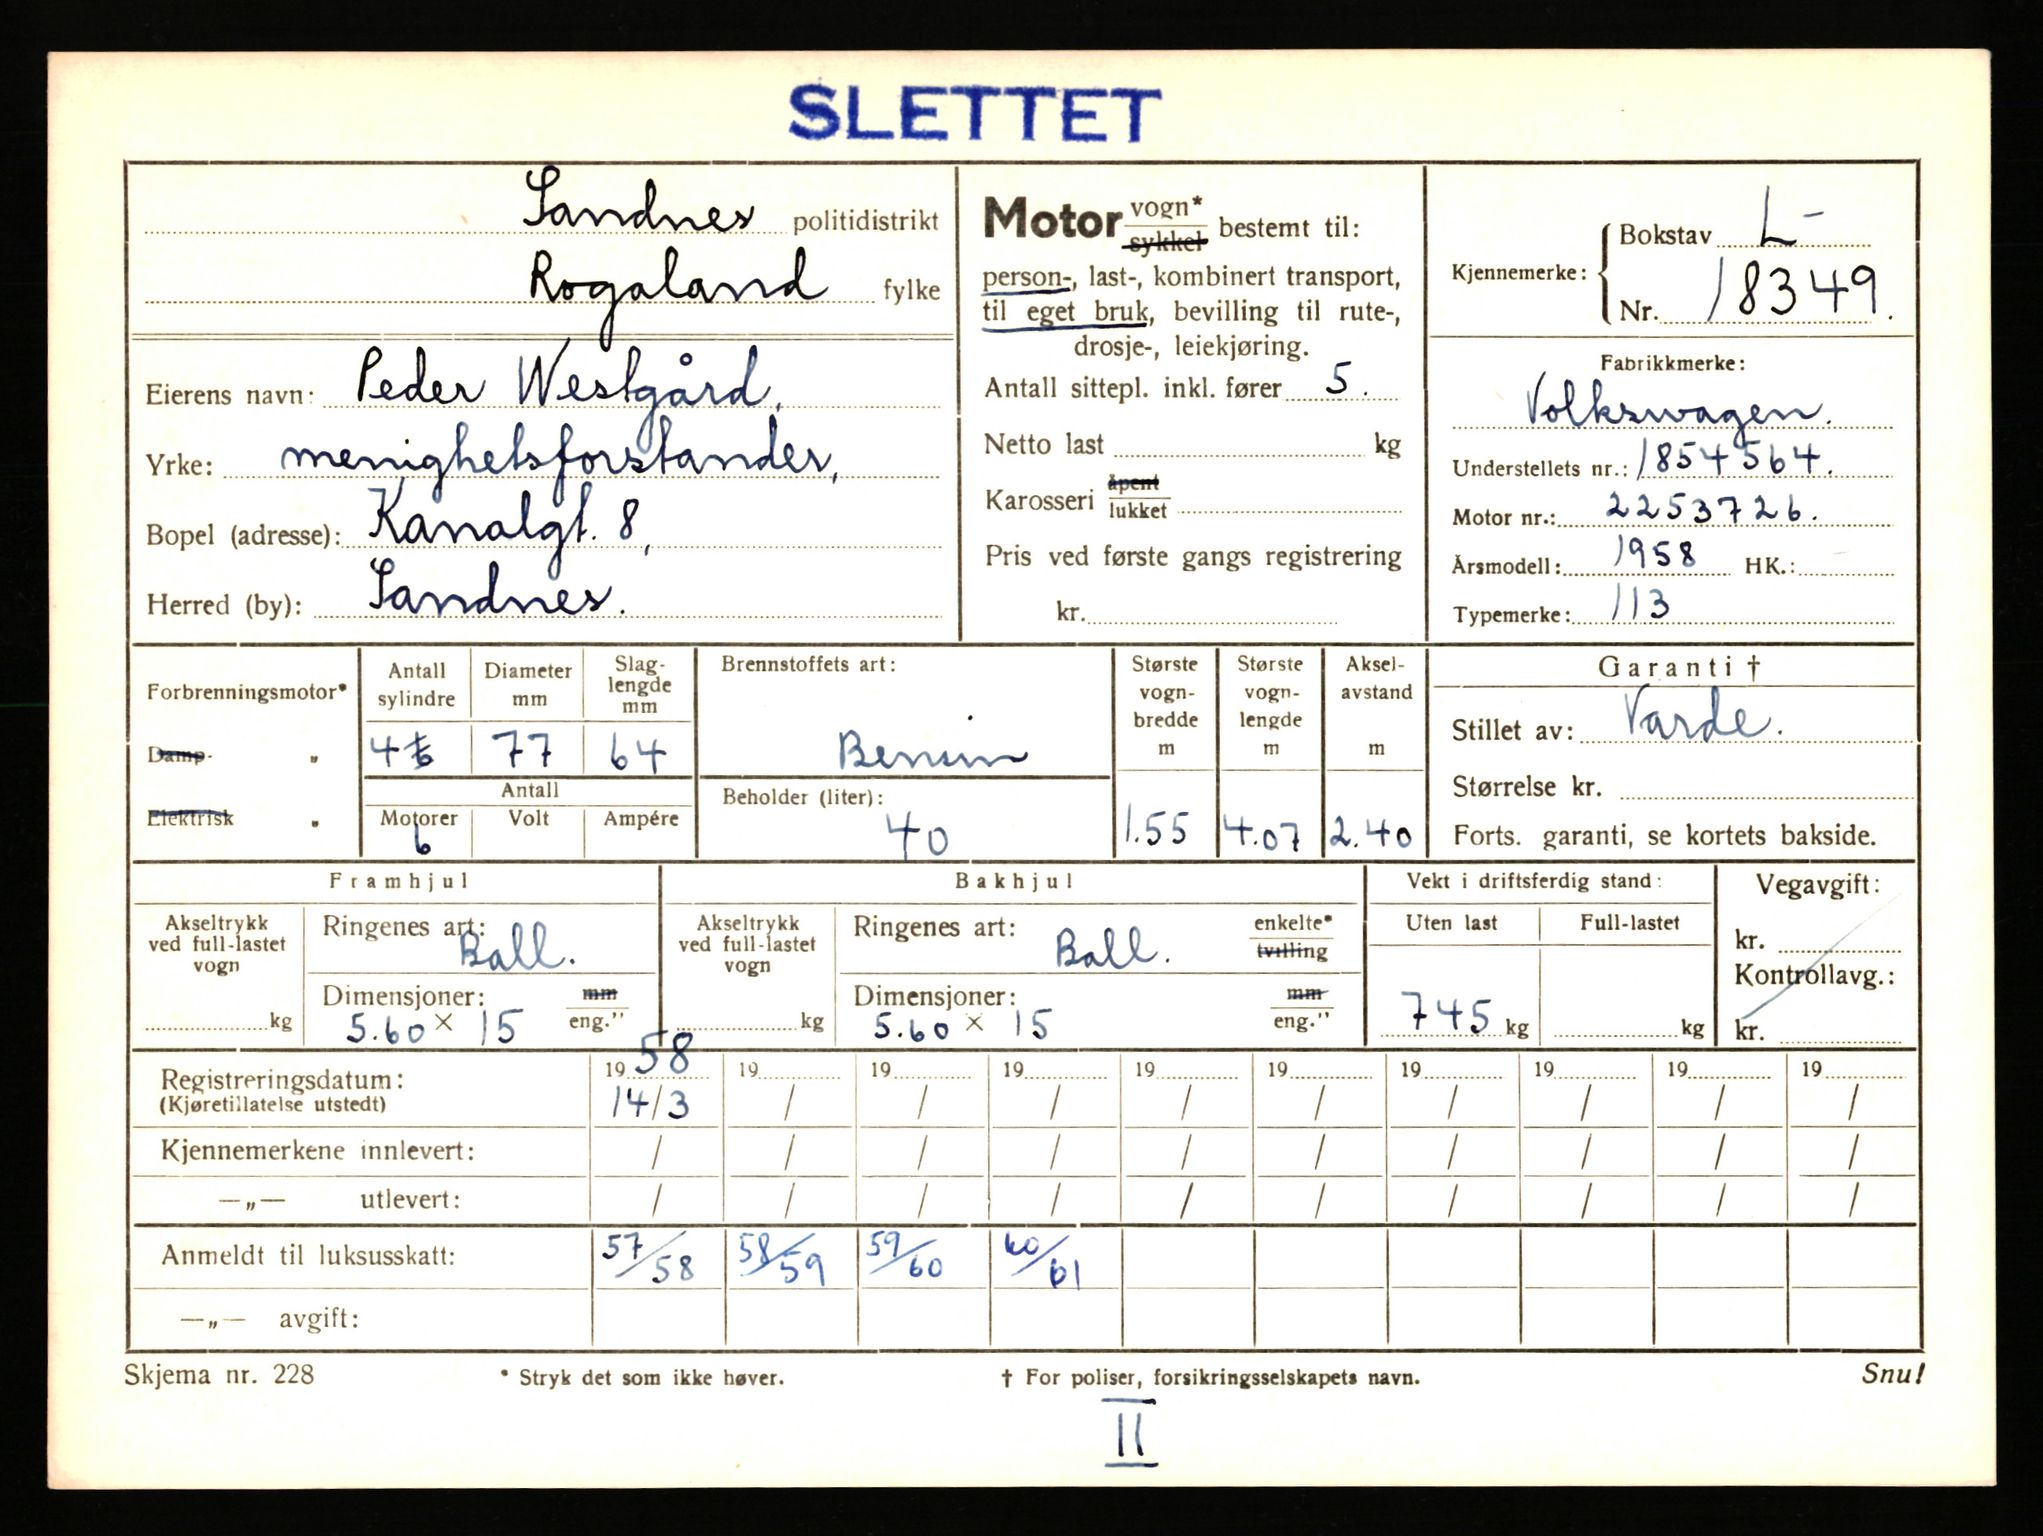 SLETTET
Sandnes politidistrikt
Rogaland fylke
Eierens navn: Peder Westgård,
Yrke: menighetsforstander,
Bopel (adresse): Kanalgt. 8,
Herred (by): Sandnes.
Motor vogn* sykkel bestemt til:
person-, last-, kombinert transport,
til eget bruk, bevilling til rute-,
drosje-, leiekjøring.
Antall sittepl. inkl. fører 5.
Netto last kg
Karosseri åpent lukket
Pris ved første gangs registrering
kr.
Kjennemerke: Bokstav L-
Nr. 18349.
Fabrikkmerke:
Volkswagen.
Understellets nr.: 1854564.
Motor nr.: 2253726.
Årsmodell: 1958 HK.:
Typemerke: 113
Forbrenningsmotor*
Damp- "
Elektrisk "
Antall sylindre
4
Diameter mm
77
Slag-lengde mm
64
Antall
Motorer Volt Ampére
6
Brennstoffets art:
Bensin
Beholder (liter):
40
Største vogn-bredde m
1.55
Største vogn-lengde m
4.07
Aksel-avstand m
2.40
Garanti †
Stillet av: Varde.
Størrelse kr.
Forts. garanti, se kortets bakside.
Framhjul
Akseltrykk ved full-lastet vogn
kg
Ringenes art: Ball.
Dimensjoner: mm
5.60 × 15 eng."
Bakhjul
Akseltrykk ved full-lastet vogn
kg
Ringenes art: Ball. enkelte* tvilling
Dimensjoner: mm
5.60 × 15 eng."
Vekt i driftsferdig stand:
Uten last Full-lastet
745 kg kg
Vegavgift:
kr.
Kontrollavg.:
kr.
Registreringsdatum: 1958 19 19 19 19 19 19 19 19 19
(Kjøretillatelse utstedt) 14/3 / / / / / / / / /
Kjennemerkene innlevert: / / / / / / / / / /
—„— utlevert: / / / / / / / / / /
Anmeldt til luksusskatt: 57/58 58/59 59/60 60/61
—„— avgift:
Skjema nr. 228 * Stryk det som ikke høver. † For poliser, forsikringsselskapets navn. Snu!
II